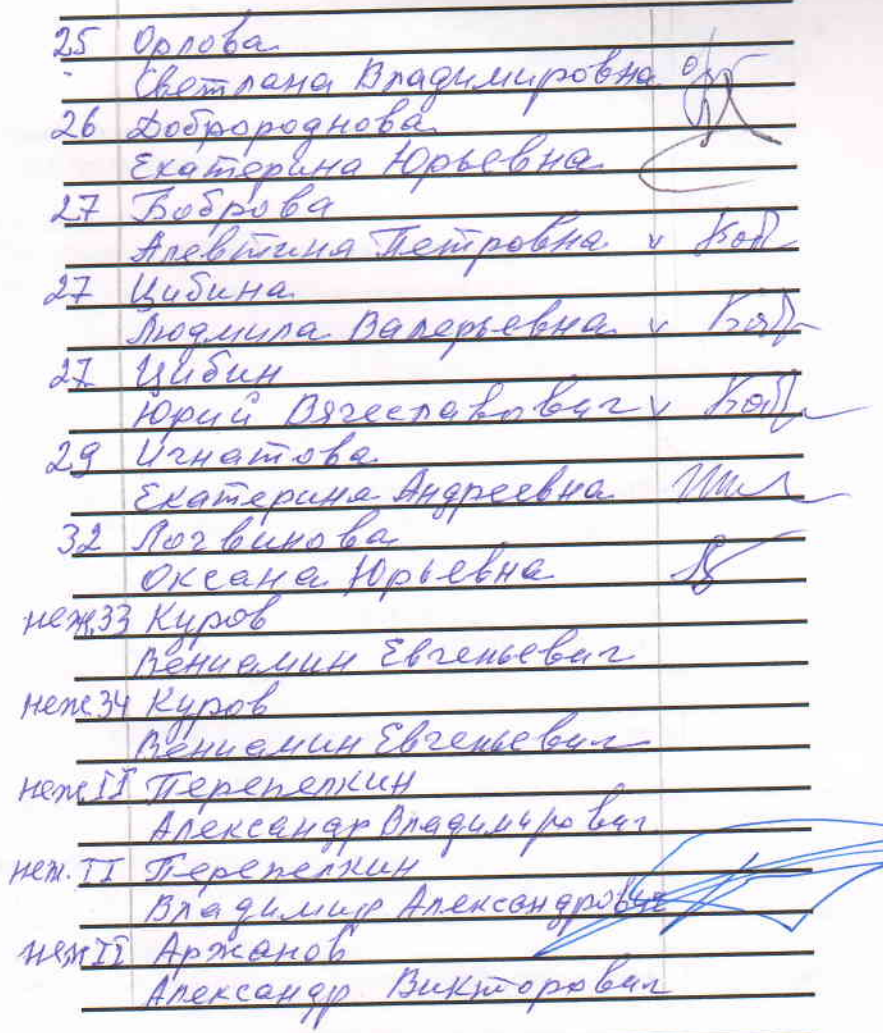 25 Орлова
Светлана Владимировна
26 Добророднова
Екатерина Юрьевна
27 Боброва
Алевтина Петровна v
27 Цибина
Людмила Валерьевна v
27 Цибин
Юрий Вячеславович v
29 Игнатова
Екатерина Андреевна
32 Логвинова
Оксана Юрьевна
неж.33 Куров
Вениамин Евгеньевич
неж 34 Куров
Вениамин Евгеньевич
неж II Перепелкин
Александр Владимирович
неж. II Перепелкин
Владимир Александрович
неж II Аржанов
Александр Викторович